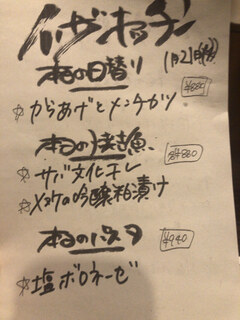 イザホッチン
1月21日(分)
本日の日替り
¥880
☆からあげとメンチかツ
本日の焼魚
¥880
☆サバ文化干し
☆メヌケの吟醸粕漬け
本日のパスタ
¥940
☆塩ボロネーゼ